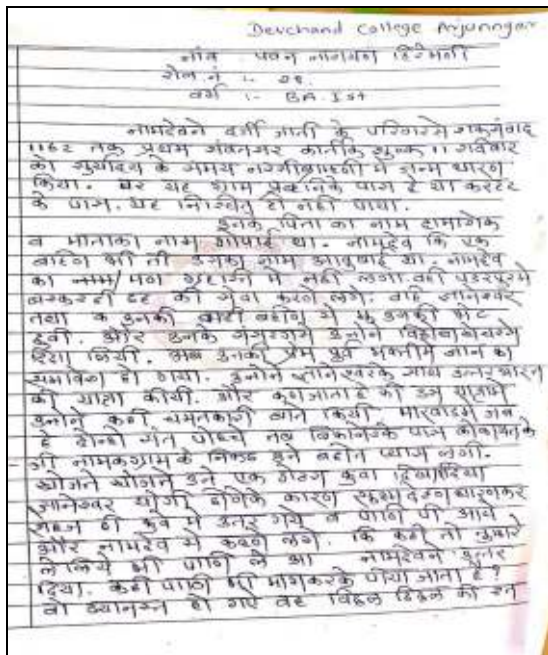 Devchand College Arjunngar
नांव :- पवन नारायण हिरेमठ
रोल नं :- 28.
वर्ग :- BA.Ist
नामदेवने दर्जी जाती के परिवारमे शकसंवाद
1162 तक प्रथम संवतसर कार्तीक शुक्ल 11 रविवार
को सुर्यादय के समय नरसीब्राम्हणी मे जन्म धारण
किया. पर यह ग्राम परभनिके पास है या करहाड
के पास. यह निश्चित हो नही पाया.
इनके पिता का नाम दामाशेठ
व माताका नाम गोणाई था. नामदेव कि एक
बहिण भी ती उसका नाम आवुबाई था. नामदेव
का मन गृहस्ती मे नही लगा. वही पंढरपुरमे
की सेवा करणे लगे. वहि ज्ञानेश्वर
तथा उनकी बहीण से उनकी भेट
हुवी. और उनके संगतमे उन्होने
दिक्षा लियी. अब उनकी प्रेम पुर्व भक्तीमे ज्ञान का
समावेश हो गया. उन्होने ज्ञानेश्वरके साथ उत्तर भारत
की यात्रा कीयी. और कहा जाता है की उस यात्रामे
उन्होने कही चमत्कारी बाते कियी मारवाडमे जब
है दोन्हो संत पोहचे तब बिकानेरके पास
जी नामक ग्राम के निकट उने बहोत प्यास लगी.
खोजने खोजने उने एक कुवा दिखादिया
ज्ञानेश्वर योगी होणेके कारण सुक्ष्म धारणकर
सहज ही कुवे मे उतर गये व पाणि पी आये
और नामदेव से कहणे लगे. कि कही तो तुम्हारे
लिये भी पाणि ले आ नामदेवने उत्तर
दिया. कही पाणि भी मांगकरके पीया जाता है?
वो ध्यानस्त हो गए वह विठ्ठल विठ्ठल की रट